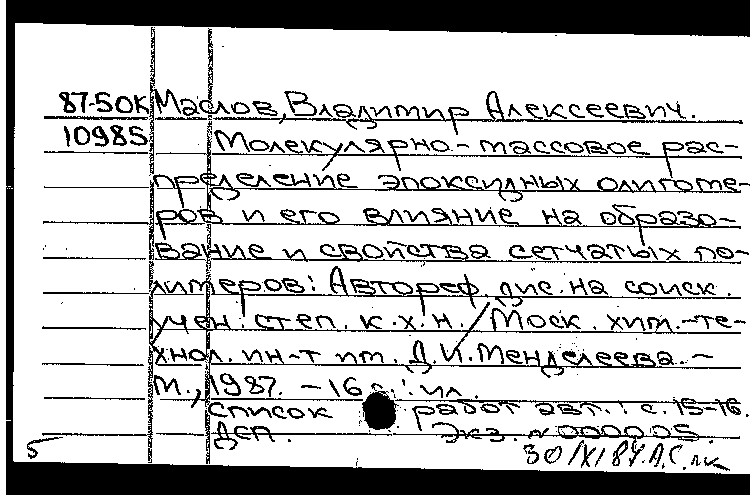 87-50К Маслов, Владимир Алексеевич.
10985 Молекулярно-массовое рас-
пределение эпоксидных олигоме-
ров и его влияние на образо-
вание и свойства сетчатых по-
лимеров: Автореф. дис. на соиск.
учен. степ. к.х.н. / Моск. хим.-те-
хнол. ин-т им. Д.И. Менделеева. -
М., 1987. - 16 с.: ил.
Список работ авт.: с. 15-16.
Деп. Экз. N 000005.
5